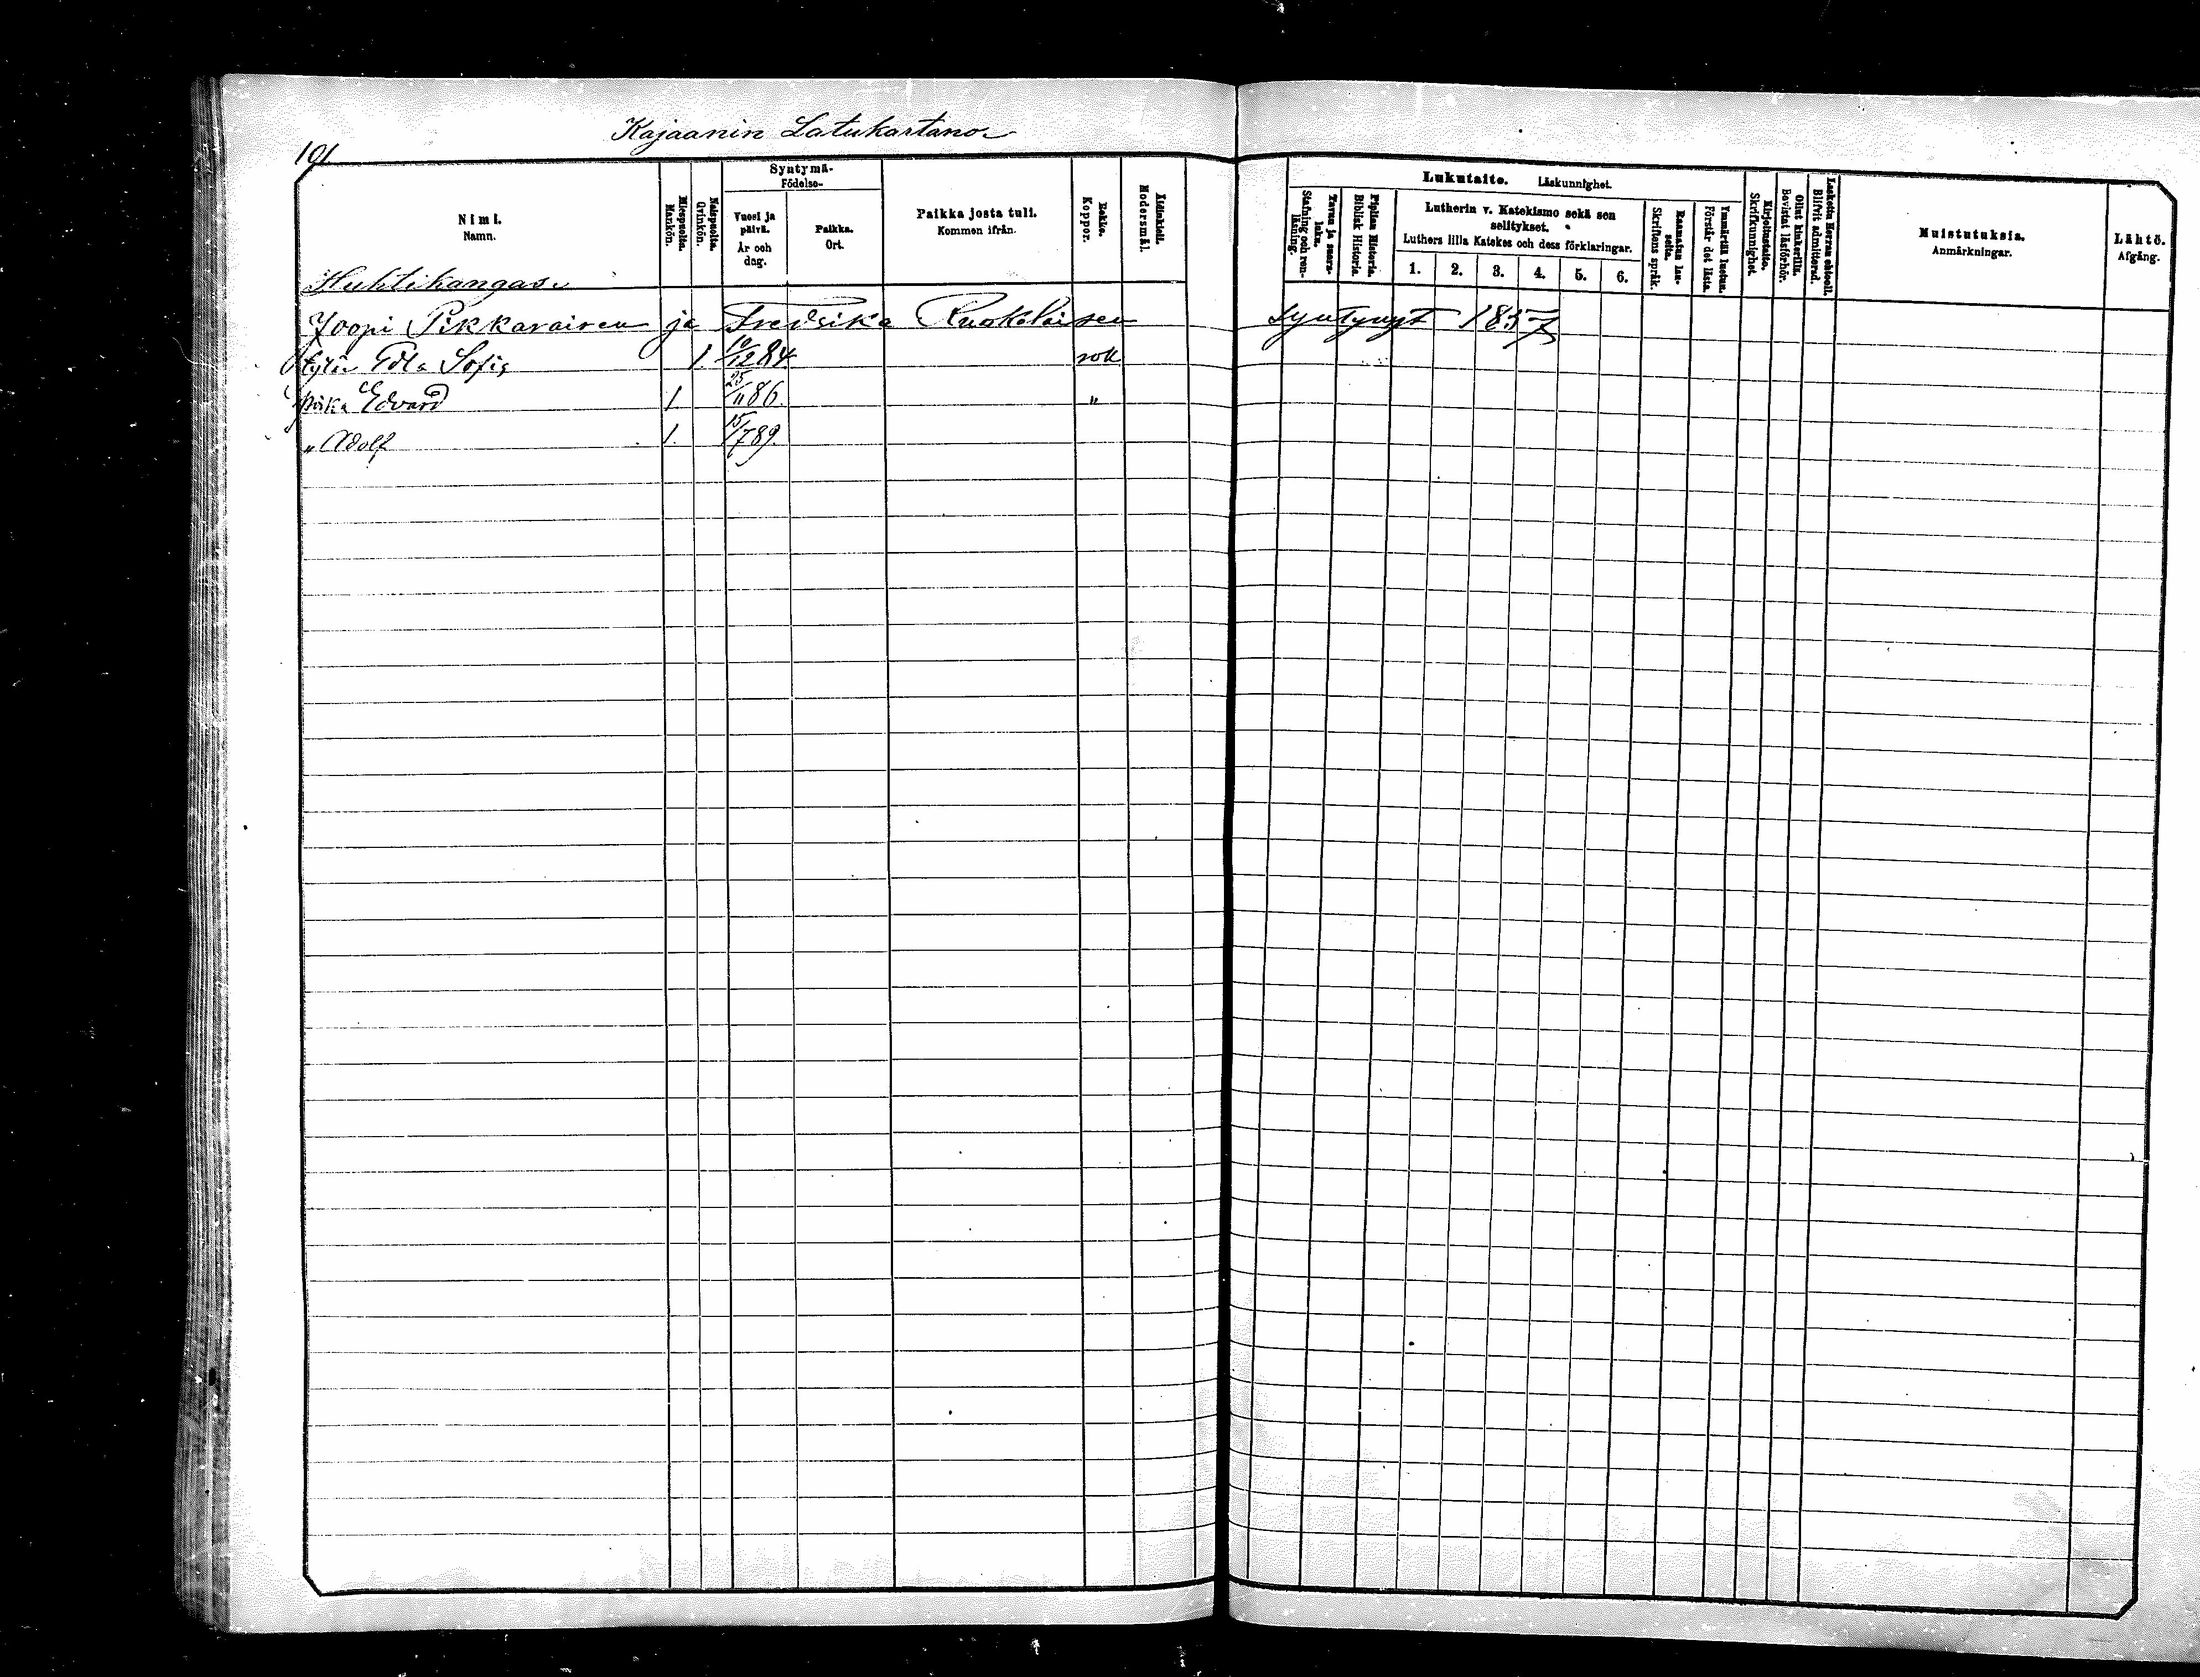 Kajaanin Latukartano
101
Nimi.
Namn.
Miespuolia.
Mankön.
Naispuolia.
Qvinkön.
Syntymä-
Födelse-
Vuosi ja päivä.
År och dag.
Paikka.
Ort.
Paikka josta tuli.
Kommen ifrån.
Rokko.
Koppor.
Äidinkieli.
Modersmål.
Lukutaito. Läskunnighet.
Tavuu ja suora-luku.
Stafning och ren-läsning.
Piplian Historia.
Biblisk Historia.
Lutherin v. Katekismo sekä sen
selitykset.
Luthers lilla Katekes och dess förklaringar.
1. 2. 3. 4. 5. 6.
Raamatun lau-seita.
Skriftens språk.
Ymmärtää luetun.
Förstår det lästa.
Kirjoitustaito.
Skrifkunnighet.
Ollut kinkerillä.
Bevistat läsförhör.
Laskettu Herran ehtooll.
Blifvit admitterad.
Muistutuksia.
Anmärkningar.
Lähtö.
Afgång.
Huhtikangas
Joopi Pikkaraisen ja Fredsika Ruokolaisen syntynyt 1857
tytär Edla Sofia 1. 10/12 84. rok
poika Edvard 1. 25/11 86. "
" Adolf 1. 15/7 89.